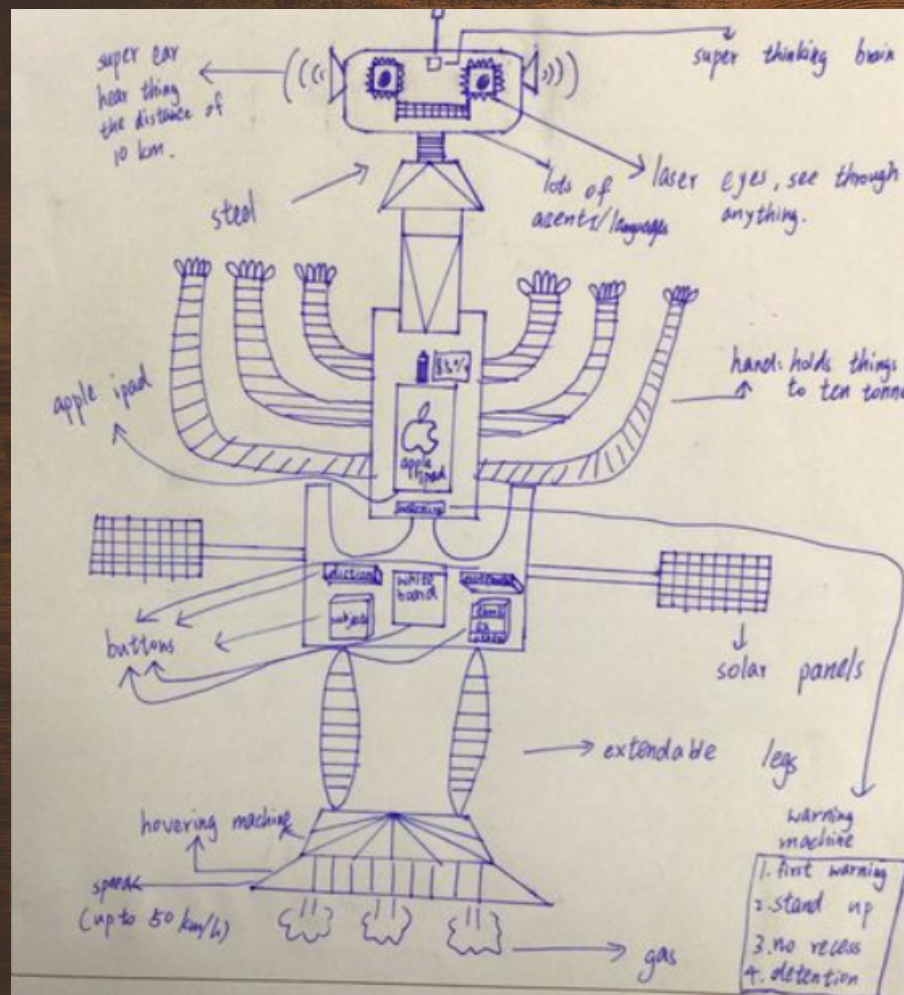 super ear
hear thing
the distance of
10 km.
super thinking brain
steel
lots of
acents/languages
laser eyes, see through
anything.
apple ipad
83%
apple
ipad
warning
hand: holds things
to ten tonne
white
board
subject
buttons
solar panels
extendable legs
hovering machine
(up to 50 km/h)
gas
warning
machine
1. first warning
2. stand up
3. no recess
4. detention